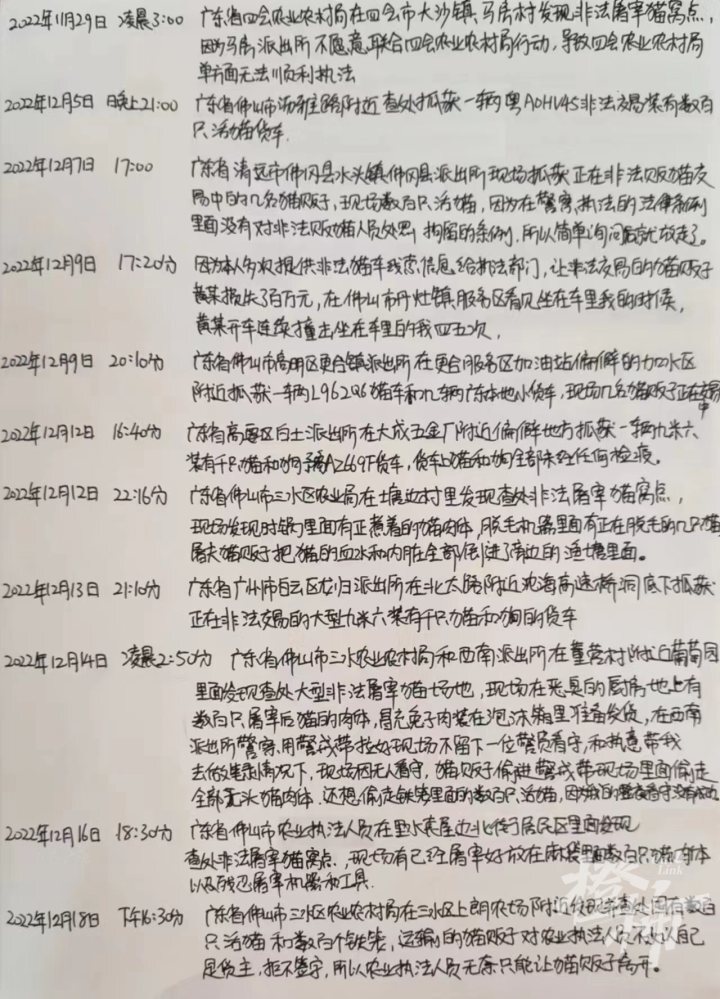 2022年11月29日 凌晨3:00 广东省四会农业农村局在四会市大沙镇马房村发现非法屠宰猫窝点,
因为马房派出所不愿意联合四会农业农村局行动,导致四会农业农村局
单方面无法顺利执法
2022年12月5日 晚上21:00 广东省佛山市 路附近查处抓获一辆粤A0HV45非法交易装有数百
只活猫货车.
2022年12月7日 17:00 广东省清远市佛冈县水头镇佛冈县派出所现场抓获正在非法贩猫交
易中的几名猫贩子,现场数百只活猫,因为在警察执法的法律条例
里面没有对非法贩猫人员处罚 拘留的条例,所以简单询问后就放走了。
2022年12月9日 17:20分 因为本人多次提供非法猫车线索信息给执法部门,让非法交易的猫贩子
黄某损失了百万元,在佛山市丹灶镇服务区看见坐在车里我的时候,
黄某开车连续撞击坐在车里的我四五次,
2022年12月9日 20:10分 广东省佛山市高明区更合镇派出所在更合服务区加油站偏僻的加水区
附近抓获一辆L962Q6猫车和几辆广东本地小货车,现场几名猫贩子正在交易中
2022年12月12日 16:40分 广东省高要区白土派出所在大成五金厂附近偏僻地方抓获一辆九米六
装有千只猫和狗 AZ669F货车,货车上猫和狗全部未经任何检疫。
2022年12月12日 22:16分 广东省佛山市三水区农业局在塘边村里发现查处非法屠宰猫窝点,
现场发现时锅里面有正煮着的猫肉体,脱毛机器里面有正在脱毛的几只猫
屠夫猫贩子把猫的血水和内脏全部倒进了旁边的渔塘里面。
2022年12月13日 21:10分 广东省广州市白云区龙归派出所在北太路附近沈海高速桥洞底下抓获
正在非法交易的大型九米六装有千只猫和狗的货车
2022年12月14日 凌晨2:50分 广东省佛山市三水农业农村局和西南派出所在董营村附近葡萄园
里面发现查处大型非法屠宰猫场地,现场在恶臭的厨房地上有
数百只屠宰后猫的肉体,冒充兔子肉装在泡沫箱里准备发货,在西南
派出所警察用警戒带拉好现场不留下一位警员看守,和执意带我
去做笔录情况下,现场因无人看守,猫贩子偷进警戒带现场里面偷走
全部无头猫肉体.还想偷走铁笼里面的数百只活猫,因为我的 看守没有成功
2022年12月16日 18:30分 广东省佛山市农业执法人员在里水 边北 居民区里面发现
查处非法屠宰猫窝点,现场有已经屠宰好放在麻袋里面数百只猫肉体
以及残忍屠宰机器和工具.
2022年12月18日 下午16:30分 广东省佛山市三水区农业农村局在三水区上朗农场附近发现并查处 有数百
只活猫和数百个铁笼,运输的猫贩子对农业执法人员不承认自己
是货主,拒不签字,所以农业执法人员无奈只能让猫贩子离开。
橙柿
Link